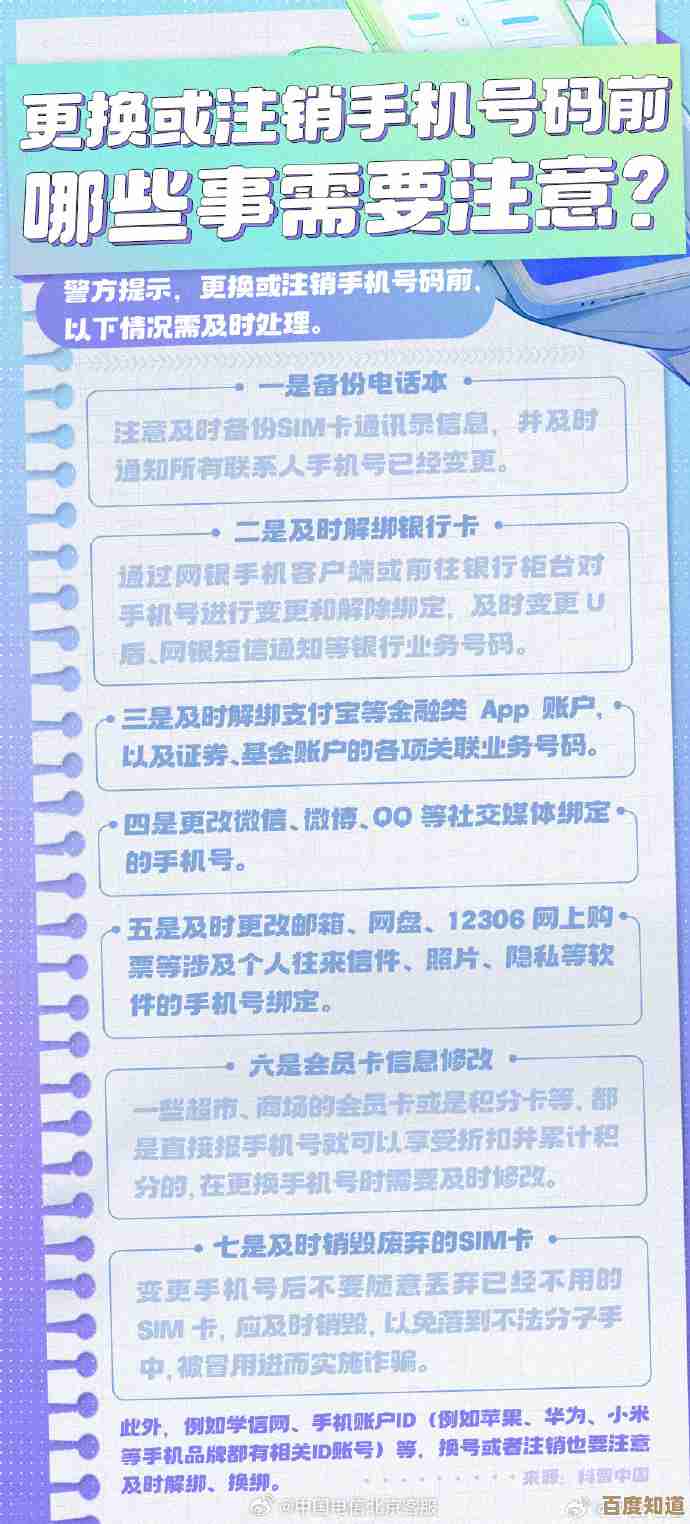 更换或注销手机号码前
哪些事需要注意?
警方提示，更换或注销手机号码前，
以下情况需及时处理。
一是备份电话本
注意及时备份SIM卡通讯录信息，并及时
通知所有联系人手机号已经变更。
二是及时解绑银行卡
通过网银手机客户端或前往银行柜台对
手机号进行变更和解除绑定，及时变更 U
盾、网银短信通知等银行业务号码。
三是及时解绑支付宝等金融类 App 账户，
以及证券、基金账户的各项关联业务号码。
四是更改微信、微博、QQ 等社交媒体绑定
的手机号。
五是及时更改邮箱、网盘、12306 网上购
票等涉及个人往来信件、照片、隐私等软
件的手机号绑定。
六是会员卡信息修改
一些超市、商场的会员卡或是积分卡等，都
是直接报手机号就可以享受折扣并累计积
分的，在更换手机号时需要及时修改。
七是及时销毁废弃的SIM卡
变更手机号后不要随意丢弃已经不用的
SIM 卡，应及时销毁，以免落到不法分子手
中，被冒用进而实施诈骗。
此外，例如学信网、手机账户ID（例如苹果、华为、小米
等手机品牌都有相关ID账号）等，换号或者注销也要注意
及时解绑、换绑。
来源：科普中国
@中国电信北京客服
百度知道